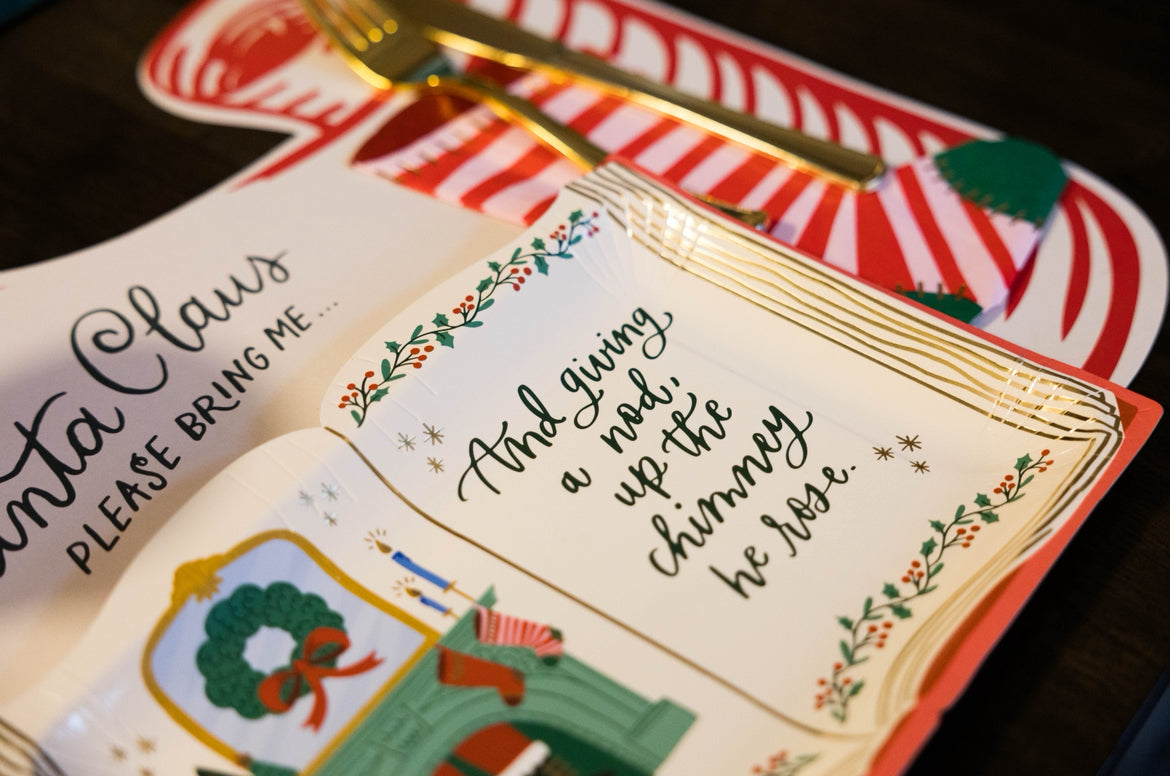 Claus
PLEASE BRING ME...
And giving
a nod,
up the
chimney
he rose.